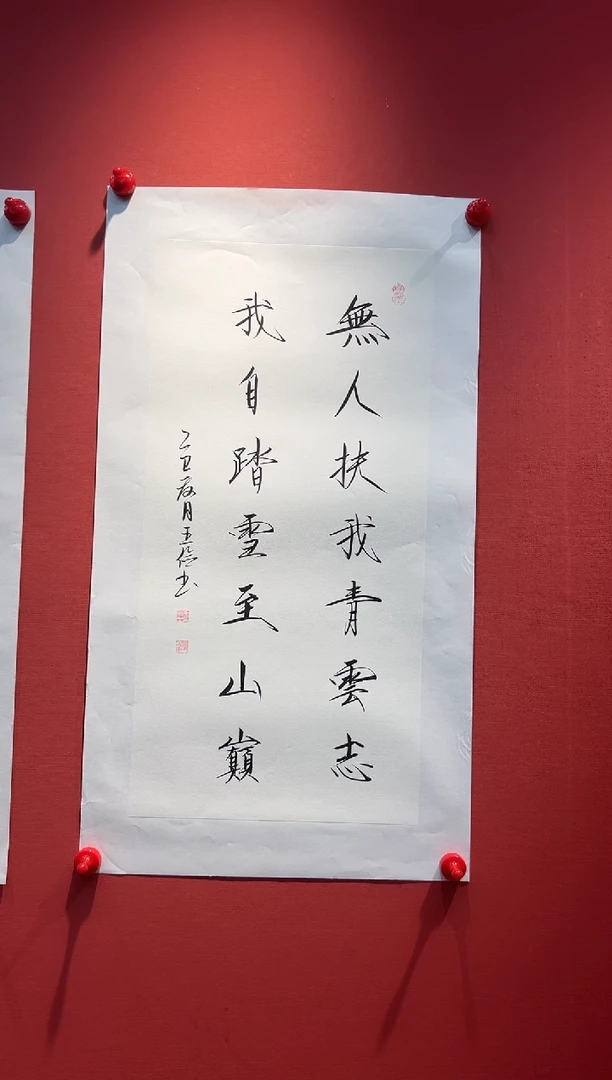 無人扶我青雲志
我自踏雪至山巔
乙巳夏月王信书